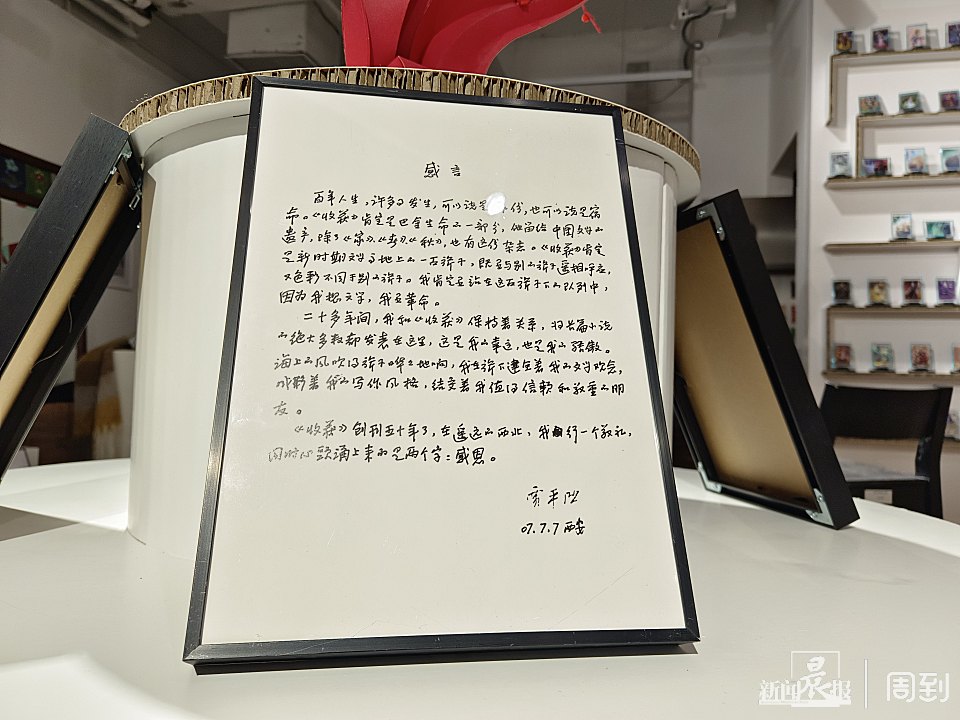 感言
百年人生，许多事发生，可以说是 份，也可以说是宿
命。《收获》肯定是巴金生命的一部分，他留给中国文坛的
遗产，除了《家》《春》《秋》，也有这份杂志。《收获》肯定
是新时期文学高地上的一面旗子，既要与别的旗子遥相呼应，
又色彩不同于别的旗子。我肯定是站在这面旗子下的队列中，
因为我想文学，我要革命。
二十多年间，我和《收获》保持着关系，将长篇小说
的绝大多数都发表在这里，这是我的幸运，也是我的骄傲。
海上的风吹得旗子哗哗地响，我在旗下 着我的文学观念，
成形着我的写作风格，结交着我值得信赖和敬重的朋
友。
《收获》创刊五十年了，在遥远的西北，我 行一个敬礼，
同时心头涌上来的是两个字：感恩。
贾平凹
07.7.7 西安
新闻晨报 周到